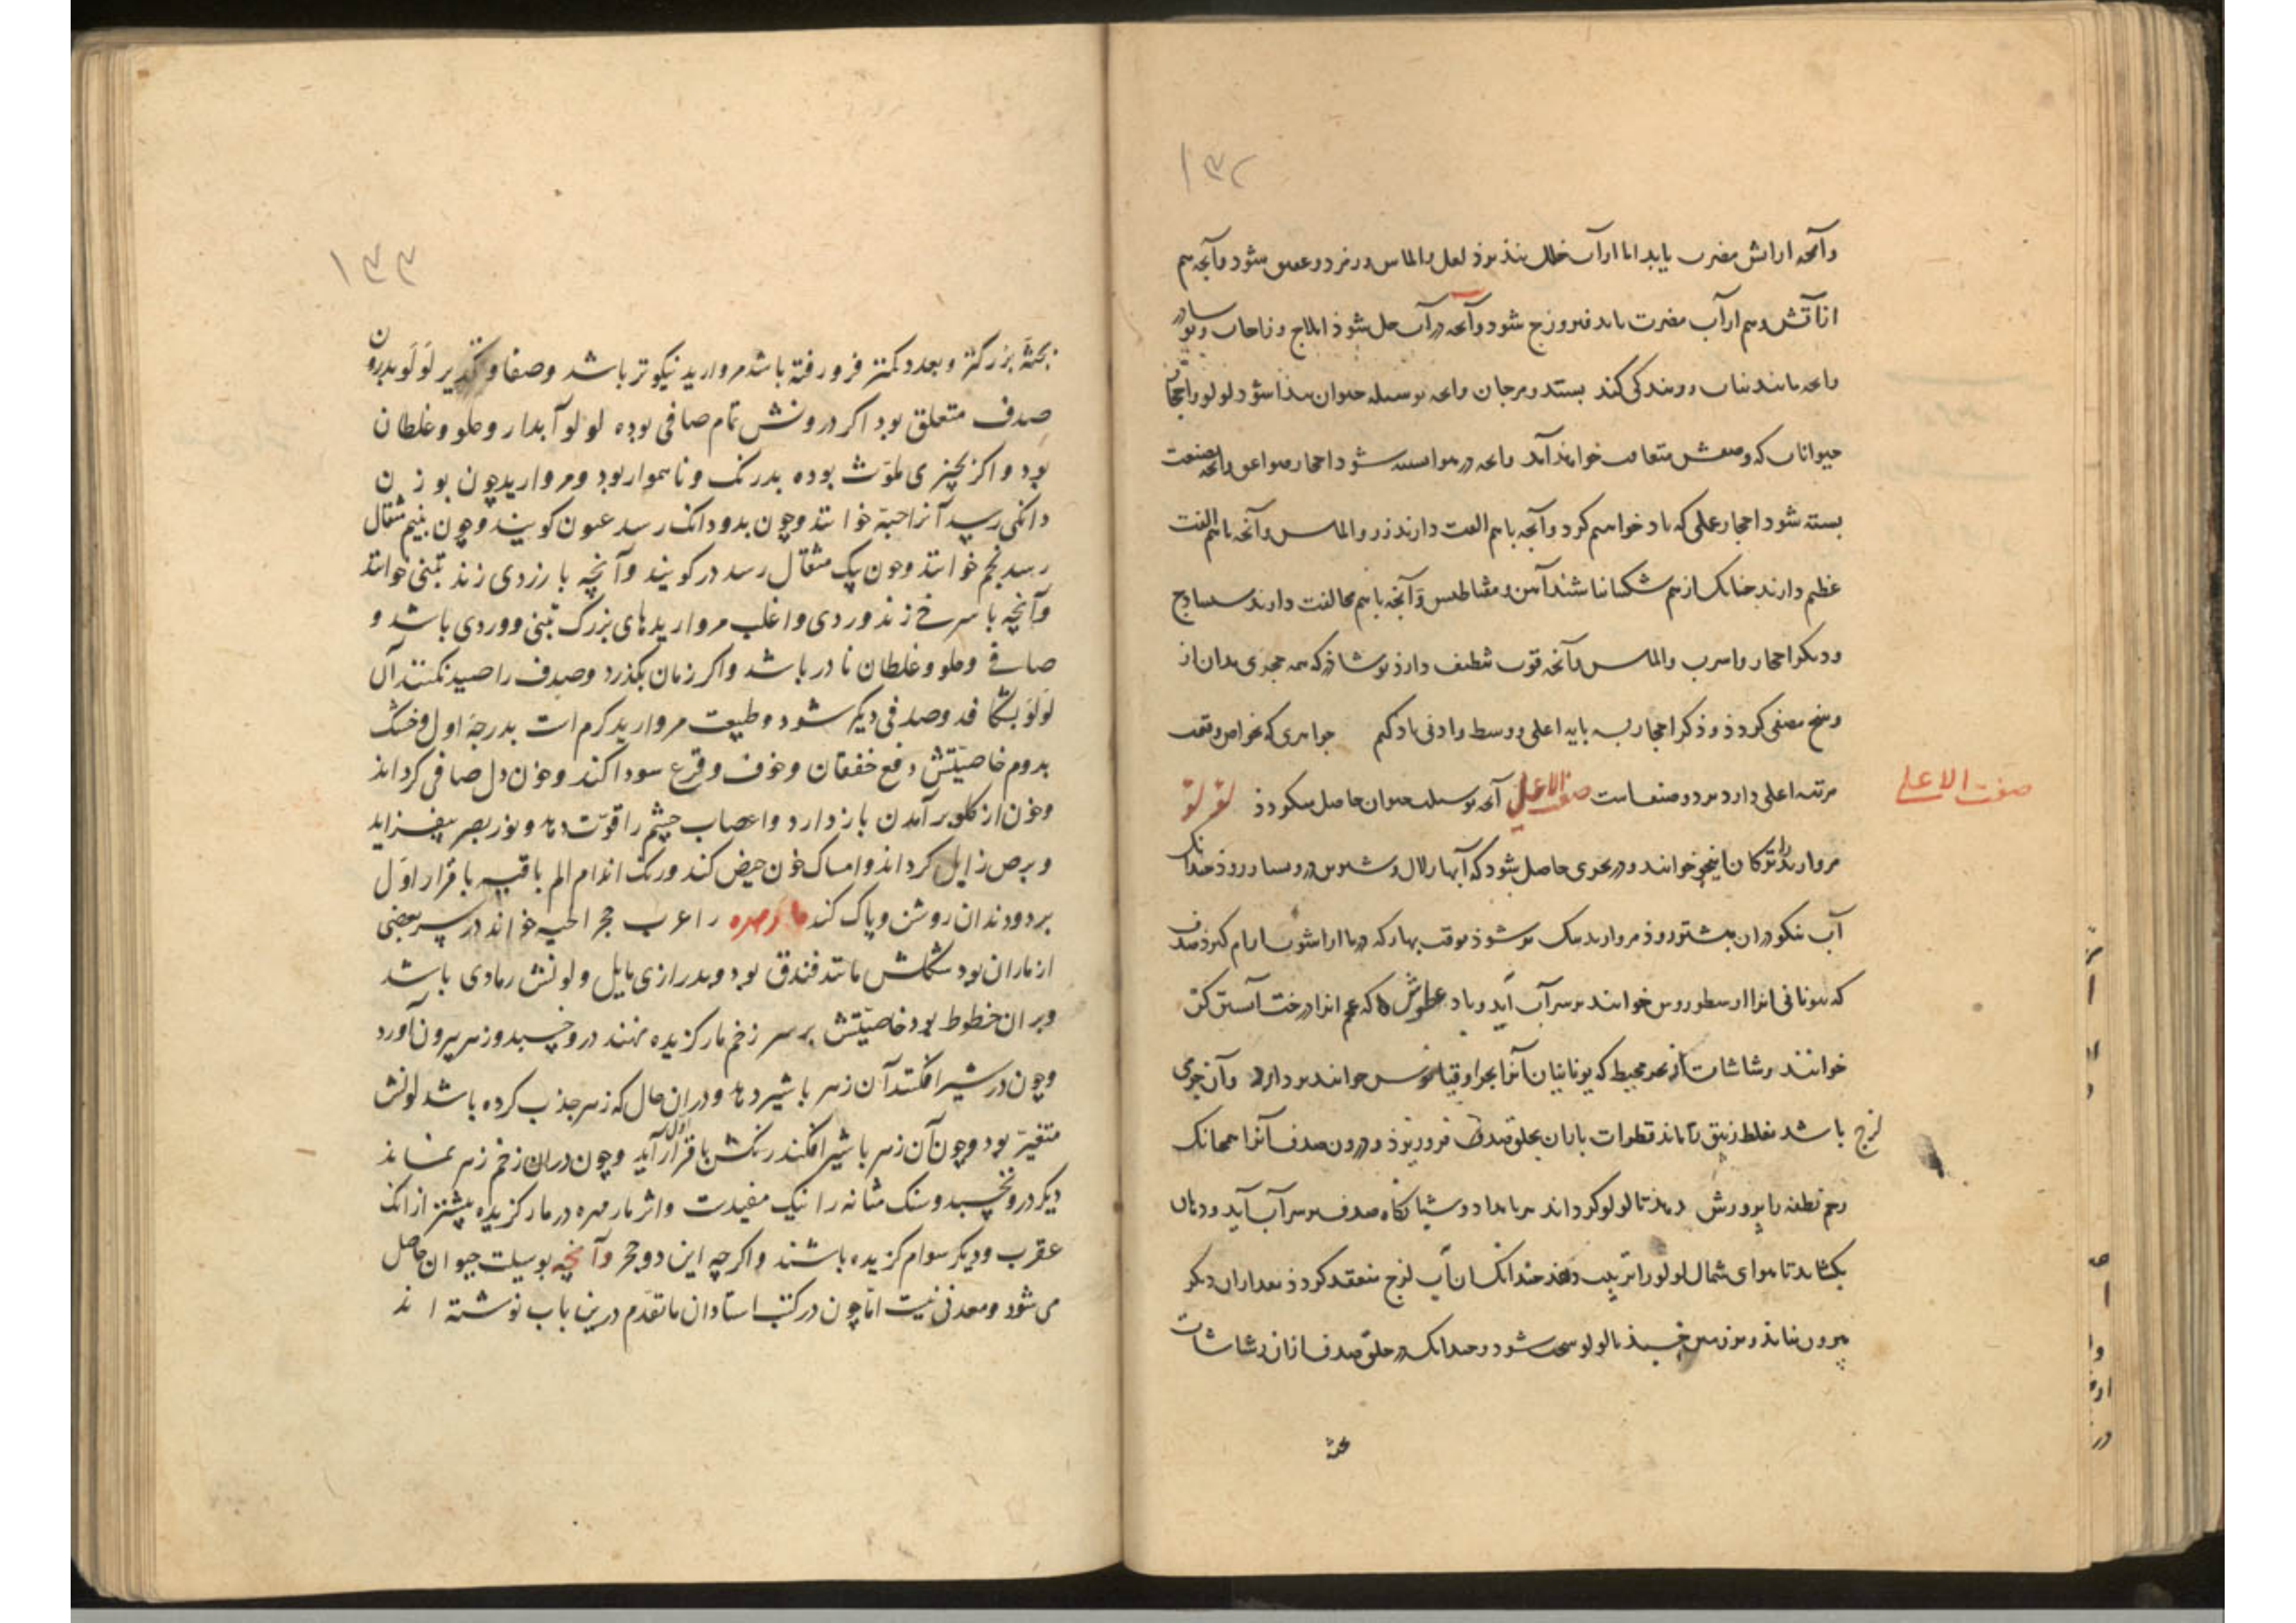 ۱۳۲
وآنچه از آتش مضرت یابد اما از آب خلل نپذیرد لعل والماس وزمرد وعقیق شود وآنچه هم
از آتش وهم از آب مضرت یابد فیروزج شود وآنچه در آب حل شود املاح وزاجات
وآنچه مانند نبات روینده کی کند بستد ومرجان وآنچه بوسیله حیوان پیدا شود لولو واحجار
حیوانات که وصفش متعاقب خواهد آمد وآنچه در هوا بسته شود احجار صواعق وآنچه بصنعت
بسته شود احجار عملی که یاد خواهیم کرد وآنچه باهم الفت دارند زر والماس وآنچه باهم الفت
عظیم دارند چنانک از هم شکیبا نباشند آهن ومقناطیس وآنچه باهم مخالفت دارند سنباذج
ودیگر احجار واسرب والماس وآنچه قوت تنظیف دارد نوشاذر که همه حجری بدان از
وسخ مصفی کردد وذکر احجار بسه پایه اعلی ووسط وادنی یاد کنیم جواهری که بخواص وقیمت
مرتبه اعلی دارد بر دو صنف است صنف الاعلی آنچه بوسیله حیوان حاصل میکردذ لولو
صنف الاعلی
مروارید را ترکان اینجو خوانند ودر بحری حاصل شود که آبهاء زلال وشیرین درو بسیار رود چندانک
آب نیکو در آن بیشتر رود مروارید نیک تر شود بوقت بهار که دریا از آشوب آرام کیرد صدف
که یونانی آنرا ارسطوروس خوانند بر سر آب آید وباد عاطوس که عجم آنرا درخت آبستن کن
خوانند رشاشات از بحر محیط که یونانیان آنرا بحر اوقیانوس خوانند بردارد وآن جزوی
لزج باشد بغلظ زیبق ماند قطرات باران بحلق صدف فرو ریزد ودرون صدف آنرا همچنانک
رحم نطفه را پرورش دهد تا لولو کرداند بر بامداد وشبانکاه صدف بر سر آب آید ودهان
بکشاید تا هوای شمال لولو را تربیت دهد چندانک آن آب لزج منعقد کردد بعد از آن دیکر
بیرون نیاید وبزمین چسبد تا لولو سخت شود وچندانک در حلق صدف از آن رشاشات
بجثه
۱۳۳
بجثه بزرکتر وبعدد کمتر فرو رفته باشد مروارید نیکوتر باشد وصفا وتکدیر لولو بدرون
صدف متعلق بود اکر درونش تمام صافی بوده لولو آبدار ومملو وغلطان
بود واکر بچیزی ملوث بوده بدرنک وناهموار بود ومروارید چون بوزن
دانکی رسید آنرا حبه خوانند وچون بدو دانک رسد عیون کویند وچون بنیم مثقال
رسد نجم خوانند وچون یک مثقال رسد در کویند وآنچه با زردی زند تبنی خوانند
وآنچه با سرخ زند وردی واغلب مرواریدهای بزرک تبنی ووردی باشد و
صافی ومملو وغلطان نادر باشد واکر زمان بکذرد وصدف را صید نکنند آن
لولو بشکافد وصدفی دیکر شود وطبیعت مروارید کرم است بدرجه اول وخشک
بدوم خاصیتش دفع خفقان وخوف وفزع سودا کند وخون دل صافی کرداند
وخون از کلو بر آمدن باز دارد واعصاب چشم را قوت دهد ونور بصر بیفزاید
وبرص زایل کرداند وامساک خون حیض کند ورنک اندام الم یافته با قرار اول
برد ودندان روشن وپاک کند مار مهره را عرب حجر الحیه خوانند در سر بعضی
از ماران بود شکلش مانند فندق بود وبدرازی مایل ولونش رمادی باشد
وبر آن خطوط بود خاصیتش بر سر زخم مار کزیده نهند درو چسبد وزهر بیرون آورد
وچون در شیر افکنند آن زهر با شیر دهد ودر آن حال که زهر جذب کرده باشد لونش
متغیر بود وچون آن زهر با شیر افکند رنکش با قرار اول آید وچون در آن زخم زهر نماند
دیکر درو نچسبد وسنک مثانه را نیک مفیدست واثر مار مهره در مار کزیده بیشتر از آنک
عقرب ودیکر سوام کزیده باشند واکر چه این دو حجر وآنچه بوسیلت حیوان حاصل
می شود ومعدنی نیست اما چون در کتب استادان ما تقدم درین باب نوشته اند